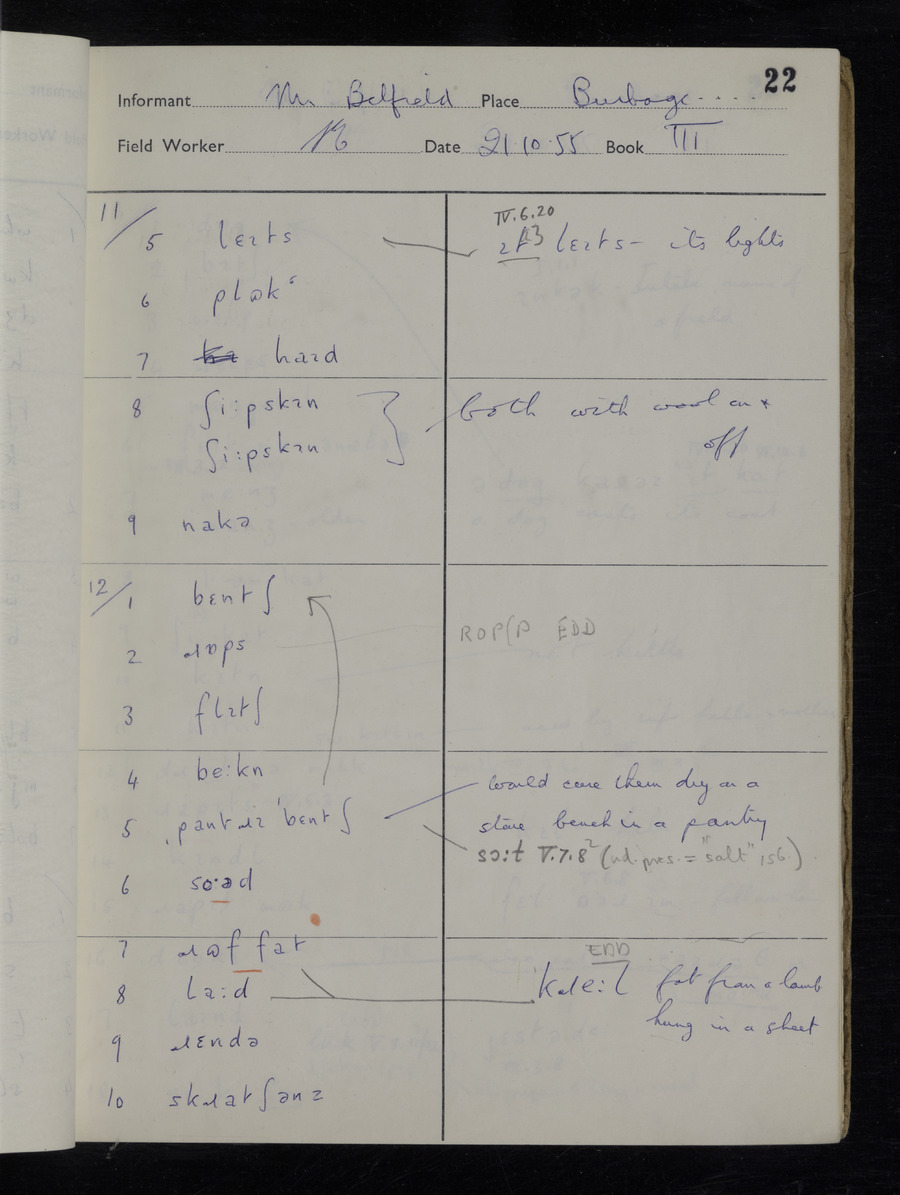 22
Informant Mr Belfield Place Burbage
Field Worker Date 21·10·55 Book III
11/ 5 lɛɪts
IV.6.20
lɛɪts – its lights
6 plɷkˢ
7 haɪd
8 ʃi:pskɪn
both with wool on +
ʃi:pskɪn
off
9 nakə
12/ 1 bɛntʃ
2 ɹɒps
ROP(P EDD
3 flɪtʃ
4 be:kn
would cure them dry on a
5 ˌpantɹɪ ˈbɛntʃ
stone bench in a pantry
sɔ:t V.7.8² (ind. pres. = "salt" 1sg.)
6 so·əd
7 ɹɷf fat
EDD
8 la:d
kɹe:l fat from a lamb
hung in a sheet
9 ɹɛndə
10 skɹatʃənz